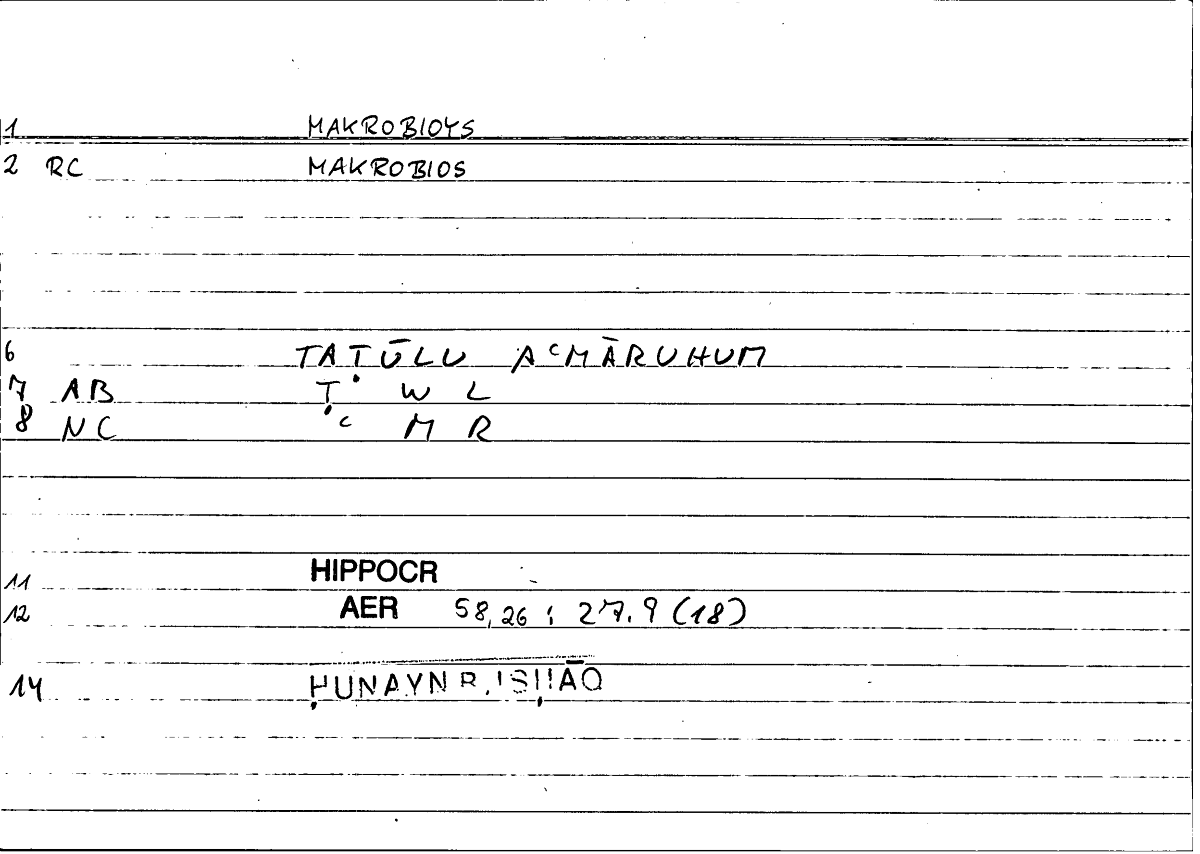 1 MAKROBIOYS
2 RC MAKROBIOS
6 TAṬŪLU AᶜMĀRUHUM
7 AB Ṭ W L
8 NC ᶜ M R
11 HIPPOCR
12 AER 58,26 ; 27.9 (18)
14 ḤUNAYN B. ISḤĀQ